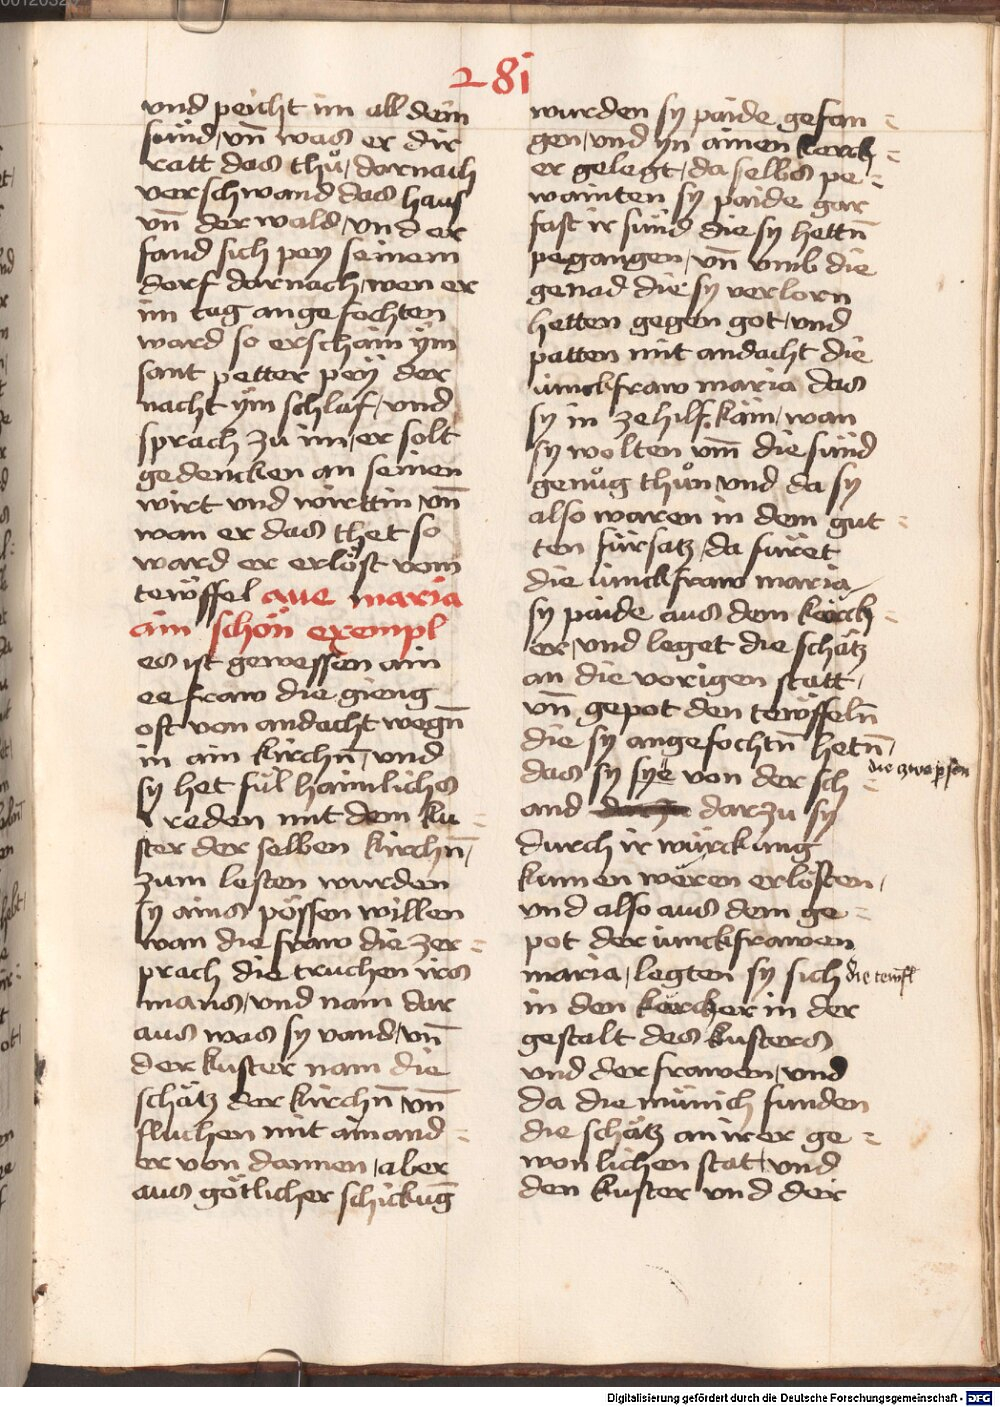 281
vnd peicht im all dein
sünd, vn̄ was er dir
ratt das thů, darnach
verschwand das haus
vn̄ der wald, vnd er
fand sich pey seinem
dorf darnach, wen er
im tag angefochten
ward so erschain ÿm
sant petter peÿ der
nacht ÿm schlaf, vnd
sprach zu im, er solt
gedencken an seinen
wirt vnd wirttin, vn̄
wan er das thet so
ward er erlöst vom
tewffel aue maria
ain schön exempl
es ist gewessen ain
ee fraw die gieng
oft von andacht wegn̄
in ain kirchn̄, vnd
sy het fül haimlichs
reden mit dem ku=
ster der selben kirchn̄,
zum lesten wurden
sy ains pössen willen
wan die fraw die zer=
prach die truchen irs
mans, vnd nam dar
aus was sy vand, vn̄
der kuster nam die
schätz der kirchn̄ vn̄
fluchen mit ainand=
er von dannen, aber
aus götlicher schickuḡ
wurden sy paide gefan=
gen, vnd yn ainen kerck=
er gelegt, da selbs pe=
wainten sy paide gar
fast ir sünd die sy hettn̄
pegangen, vn̄ vmb die
genad die sy verlorn
hetten gegen got, vnd
patten mit andacht die
iunckfraw maria das
sy in ze hilf käm, wan
sy wolten vm̄ die sünd
genůg thůn vnd da sy
also waren in dem gut=
ten fürsatz, da füret
die iunckfraw maria
sy paide aus dem kerck=
er, vnd leget die schätz
an die vorigen statt,
vn̄ gepot den tewffeln̄
die sy angefochtn̄ hetn̄,
das sy sye von der sch= die zwo person
and darzu sy
durch ir würckung
kumen weren erlösten,
vnd also aus dem ge=
pot der iunckfrawen
maria, legten sy sich die teufl
in den kercker in der
gestalt des kusters
vnd der frawen, vnd
da die münich funden
die schätz an irer ge=
wonlichen stat, vnd
den kuster vnd der
Digitalisierung gefördert durch die Deutsche Forschungsgemeinschaft - DFG